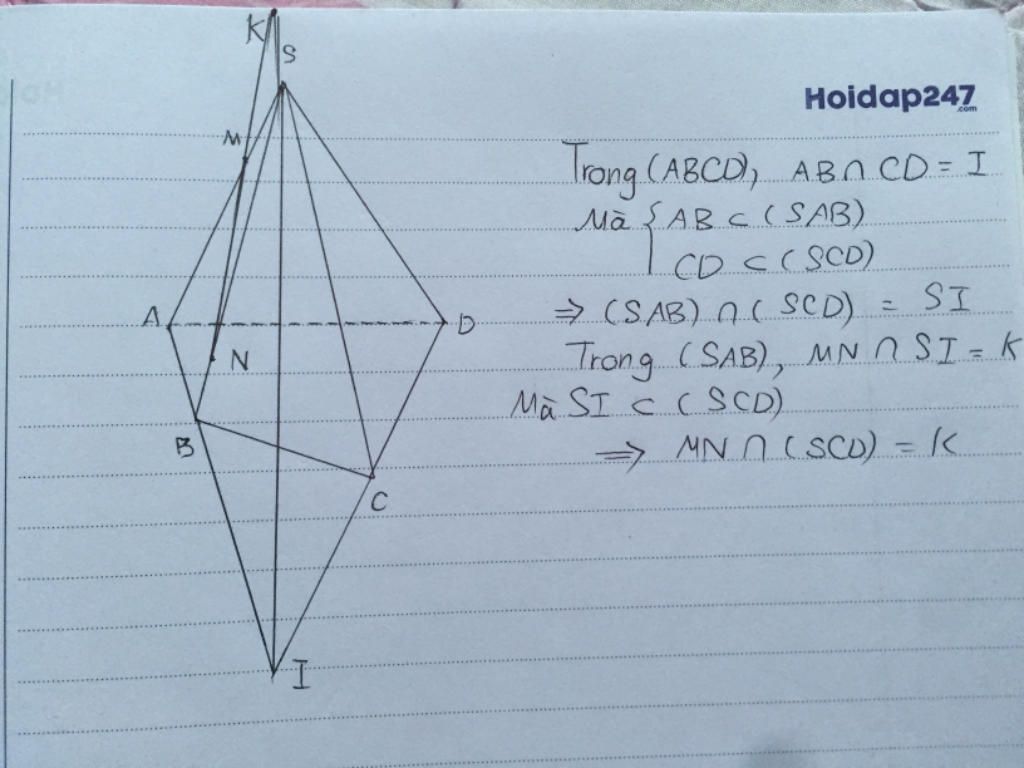 K
S
Hoidap247
.com
M
Trong (ABCD), AB ∩ CD = I
Mà { AB ⊂ (SAB)
CD ⊂ (SCD)
A
D
⇒ (SAB) ∩ ( SCD) = SI
N
Trong (SAB), MN ∩ SI = K
Mà SI ⊂ (SCD)
B
⇒ MN ∩ (SCD) = K
C
I